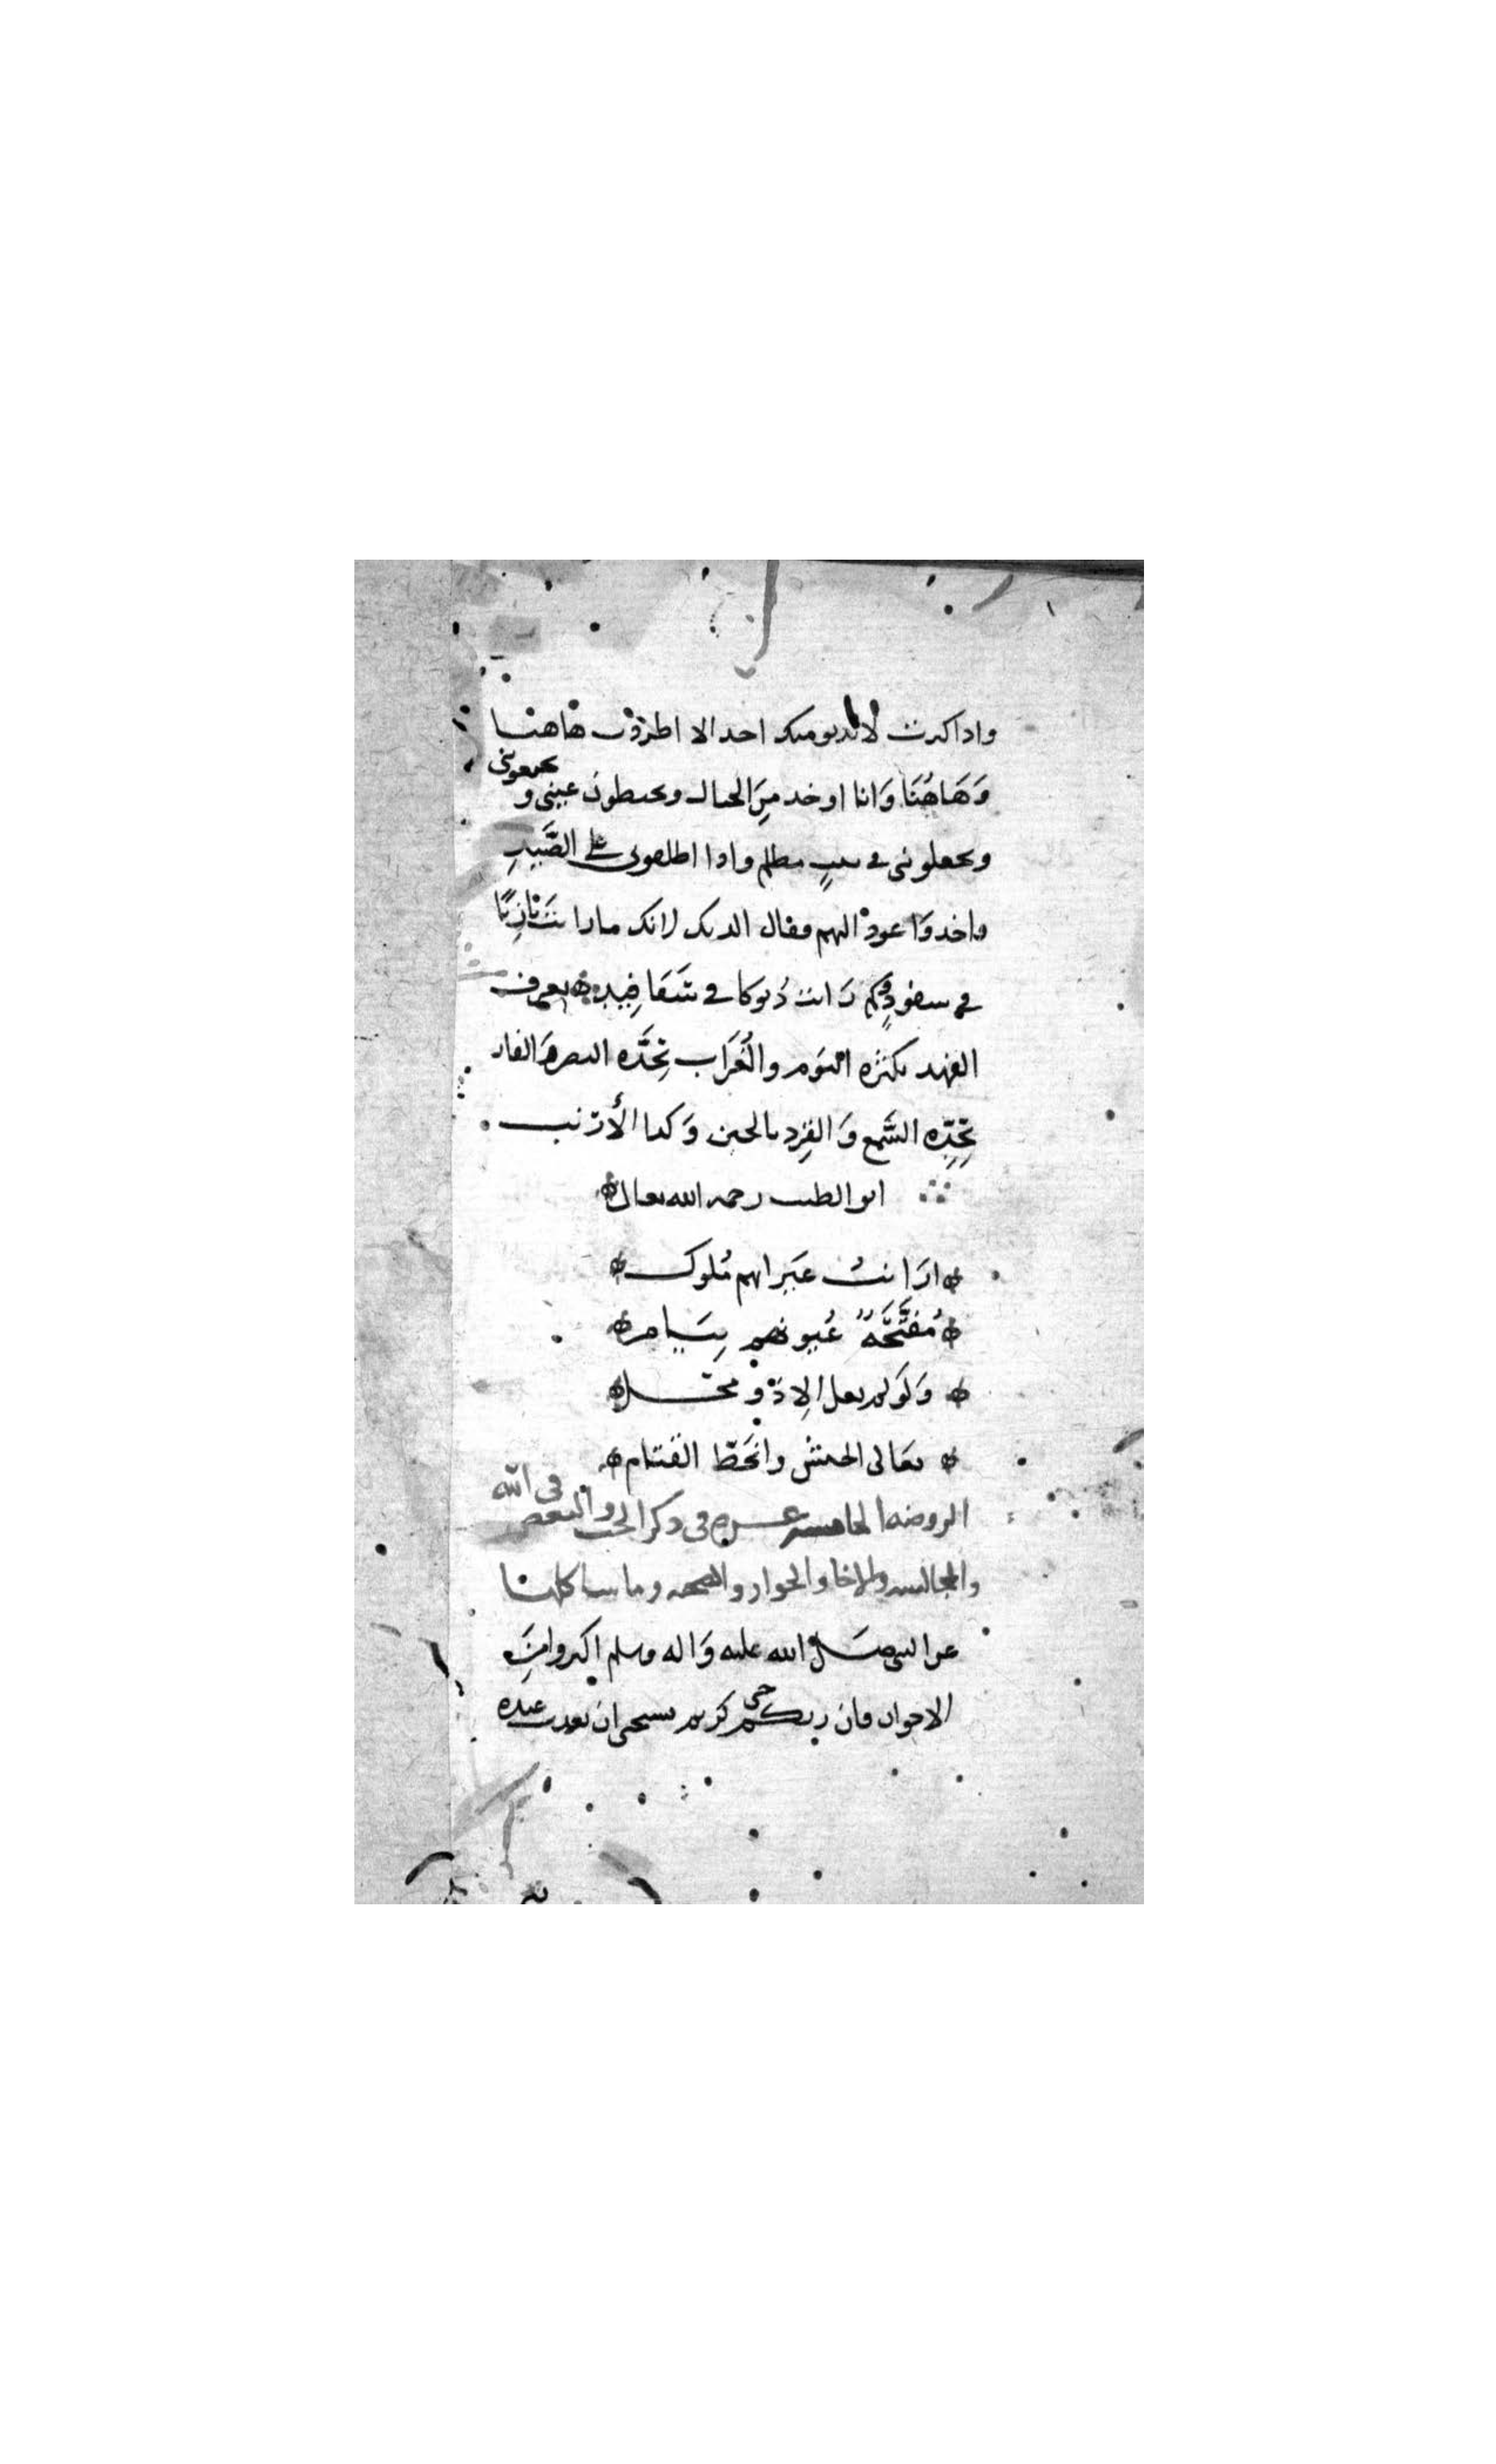 واذا كبرت لا يدنو منك احد الا اطرت هاهنا
وَهَاهُنَا وَانا اوخذ مِنَ الجبال ويخيطون عيني و يجيعوني
ويجعلوني في بيتٍ مظلم واذا اطلقوني على الصَّيدِ
واخذوَا عود اليهم فقال الديك لانك ما رايت بَازيًا
في سفودٍ وكم رَايت دُيوكا في سَفَافِيد يعرف
الفهد بكثره النوم والغُرَاب بحِدَّه البصر وَالفار
بحِدِّه السَّمع وَالقِرد بالحبن وَكذا الأرنب
ابو الطيب رحمه الله تعالى
ارَانبُ غيَر انهم مُلوك
مُفَتَّحَةٌ عُيونهم نِيَام
وَلَو لم يعل الا ذو محل
تعالى الجيش وانحَطّ القتام
الروضه الخامسه عشره في ذكر الحب والبغض في الله
والمجالسه والاخا والجوار والصحبه وما شاكلهنا
عن النبي صَلى الله عليه وَاله وسلم اكثروا مِنَ
الاخوان فان ربكم حي كريم يستحي ان يعذب عبده